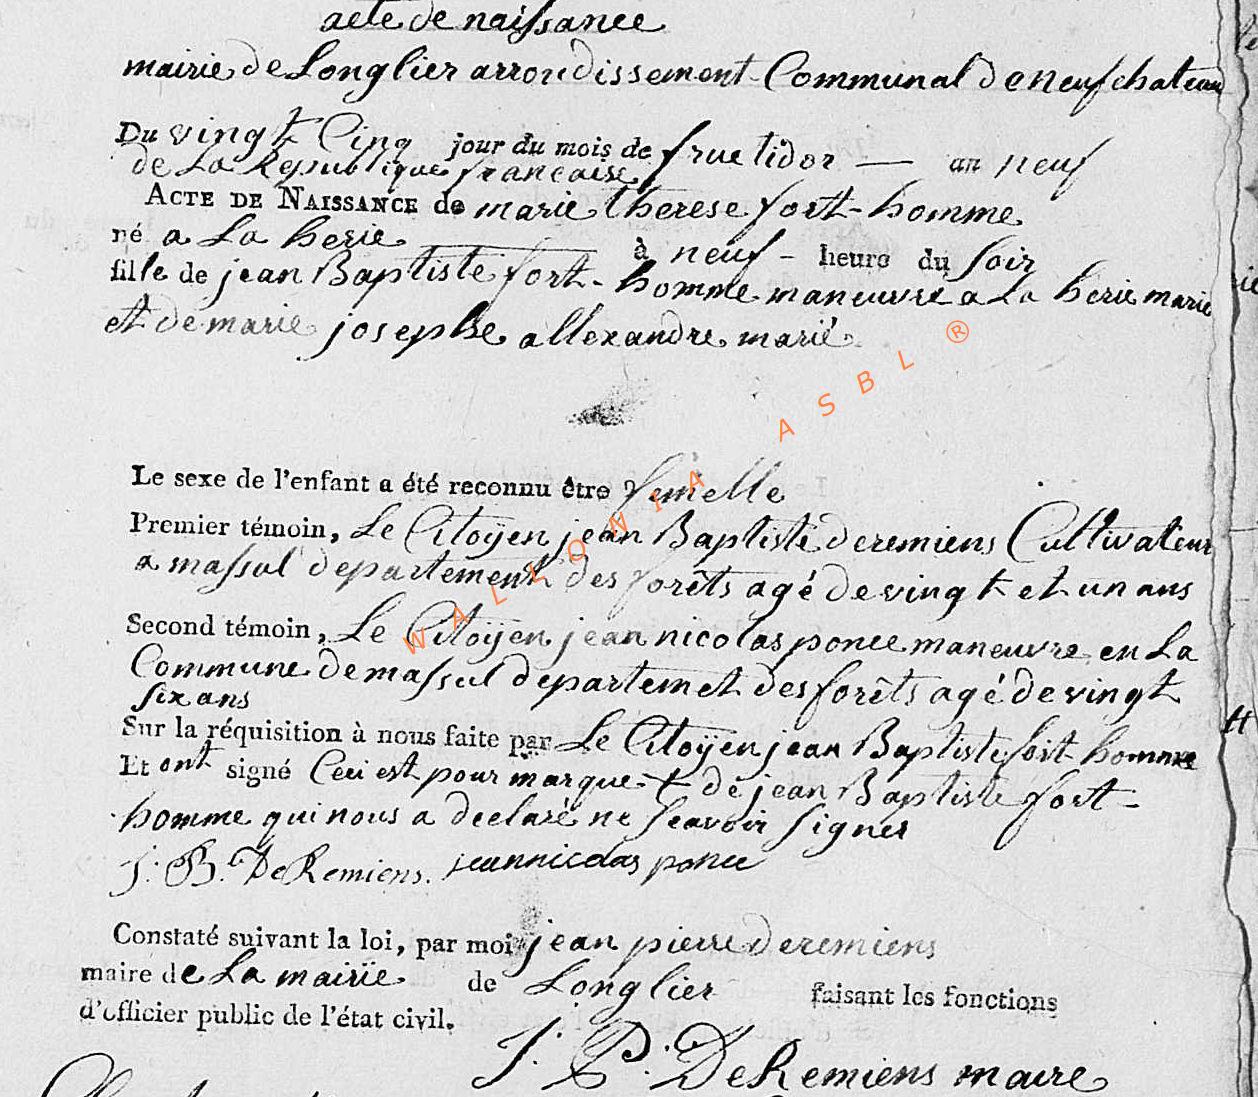 acte de naissance
mairie de Longlier arrondissement Communal de neufchateau
Du vingt Cinq jour du mois de fructidor — an neuf
de La Republique francaise
ACTE DE NAISSANCE de marie therese fort-homme
né a La herie à neuf - heure du soir
fille de jean Baptiste fort-homme maneuvre a La herie marié
et de marie josephe allexandre marié
Le sexe de l'enfant a été reconnu être femelle
Premier témoin, Le Citoÿen jean Baptiste deremiens Cultivateur
a massul departement des forêts agé de vingt et un ans
Second témoin, Le Citoÿen jean nicolas ponce maneuvre en La
Commune de massul departemet des forêts agé de vingt
six ans
Sur la réquisition à nous faite par Le Citoÿen jean Baptiste fort homme
Et ont signé Ceci est pour marque + de jean Baptiste fort-
homme qui nous a declaré ne scavoir signer
J. B. DeRemiens. jean nicolas ponce
Constaté suivant la loi, par moi jean pierre deremiens
maire de La mairie de Longlier faisant les fonctions
d'officier public de l'état civil.
J. P. DeRemiens maire
WALLONIA ASBL ®